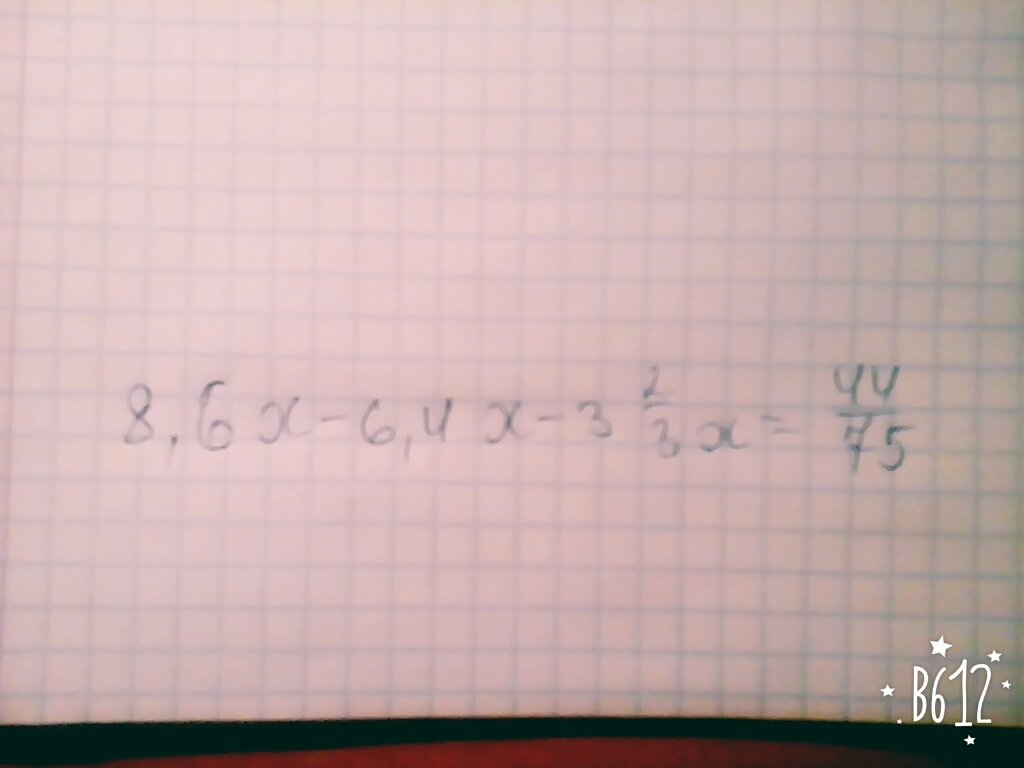 8,6x-6,4x-3 2/3 x = 44/75
B612